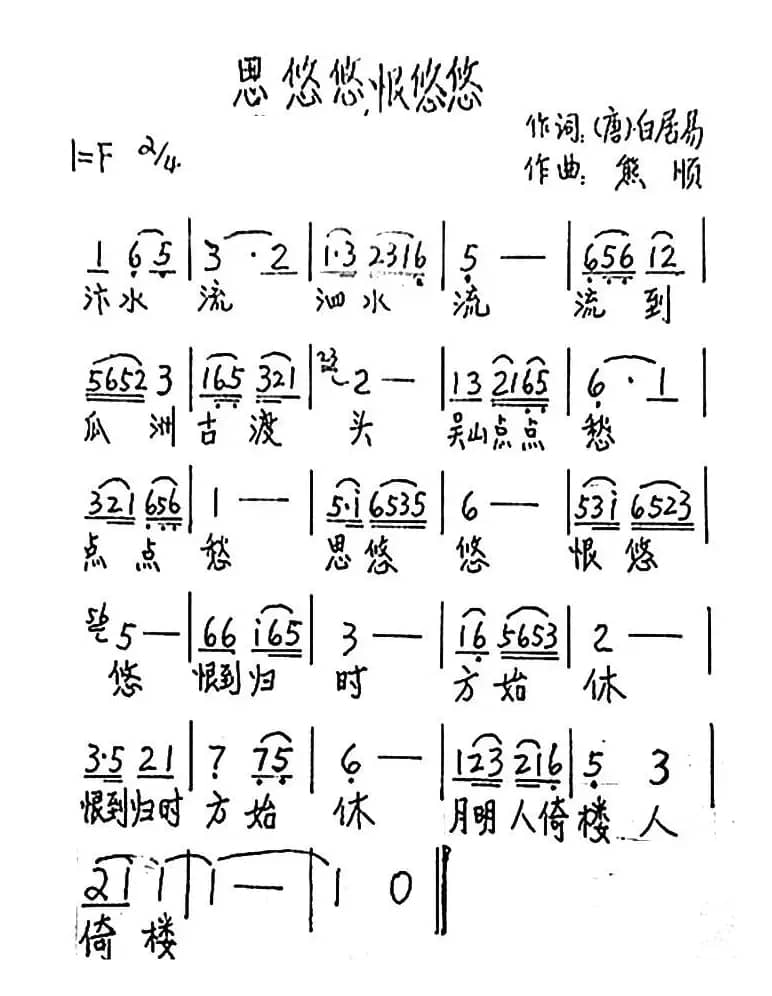 思悠悠,恨悠悠
作词:(唐)·白居易
1=F 2/4
作曲: 熊 顺
1 6 5 | 3 · 2 | 1·3 2316 | 5 — | 656 12 |
汴水 流 泗水 流 流 到
5652 3 | 165 321 | 23 2 — | 13 2165 | 6 · 1 |
瓜 洲 古 渡 头 吴山点点 愁
321 656 | 1 — | 5·i 6535 | 6 — | 53i 6523 |
点 点 愁 思悠 悠 恨 悠
56 5 — | 66 i65 | 3 — | i6 5653 | 2 — |
悠 恨到归 时 方始 休
3·5 21 | 7 75 | 6 — | 123 216 | 5 3 |
恨到归时 方 始 休 月明人倚楼 人
2i i | i — | i 0 ‖
倚 楼